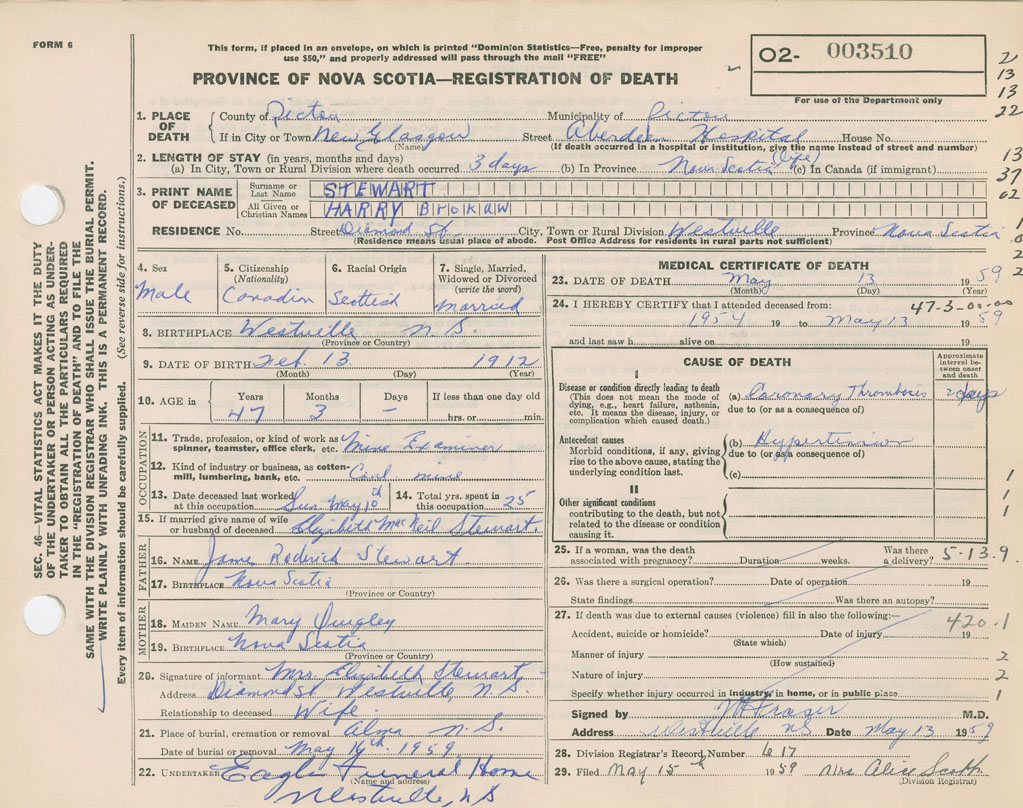 FORM 6
This form, if placed in an envelope, on which is printed "Dominion Statistics—Free, penalty for improper
use $50," and properly addressed will pass through the mail "FREE"
PROVINCE OF NOVA SCOTIA—REGISTRATION OF DEATH
O2- 003510
For use of the Department only
2
13
13
22
13
37
02
SEC. 46—VITAL STATISTICS ACT MAKES IT THE DUTY
OF THE UNDERTAKER OR PERSON ACTING AS UNDER-
TAKER TO OBTAIN ALL THE PARTICULARS REQUIRED
IN THE "REGISTRATION OF DEATH" AND TO FILE THE
SAME WITH THE DIVISION REGISTRAR WHO SHALL ISSUE THE BURIAL PERMIT.
WRITE PLAINLY WITH UNFADING INK. THIS IS A PERMANENT RECORD.
Every item of information should be carefully supplied. (See reverse side for instructions.)
1. PLACE OF DEATH County of Pictou Municipality of Pictou
If in City or Town New Glasgow Street Aberdeen Hospital House No.
(Name) (If death occurred in a hospital or institution, give the name instead of street and number)
2. LENGTH OF STAY (in years, months and days)
(a) In City, Town or Rural Division where death occurred 3 days (b) In Province Nova Scotia (life) (c) In Canada (if immigrant)
3. PRINT NAME OF DECEASED Surname or Last Name STEWART
All Given or Christian Names HARRY BROKAW
RESIDENCE No. Street Diamond St City, Town or Rural Division Westville Province Nova Scotia
(Residence means usual place of abode. Post Office Address for residents in rural parts not sufficient)
4. Sex 5. Citizenship (Nationality) 6. Racial Origin 7. Single, Married, Widowed or Divorced (write the word)
Male Canadian Scottish Married
8. BIRTHPLACE Westville N.S.
(Province or Country)
9. DATE OF BIRTH Feb. 13 1912
(Month) (Day) (Year)
10. AGE in Years Months Days If less than one day old
47 3 – hrs. or min.
OCCUPATION
11. Trade, profession, or kind of work as spinner, teamster, office clerk, etc. Mine Examiner
12. Kind of industry or business, as cotton-mill, lumbering, bank, etc. Coal mine
13. Date deceased last worked at this occupation Sun May 10th 14. Total yrs. spent in this occupation 25
15. If married give name of wife or husband of deceased Elizabeth MacNeil Stewart.
FATHER
16. NAME James Roderick Stewart
17. BIRTHPLACE Nova Scotia
(Province or Country)
MOTHER
18. MAIDEN NAME Mary Quigley
19. BIRTHPLACE Nova Scotia
(Province or Country)
20. Signature of informant Mrs. Elizabeth Stewart
Address Diamond St Westville, N.S.
Relationship to deceased Wife
21. Place of burial, cremation or removal Alma N.S.
Date of burial or removal May 16th 1959
22. UNDERTAKER Eagle Funeral Home
(Name and address)
Westville, N S
MEDICAL CERTIFICATE OF DEATH
23. DATE OF DEATH May 13 1959
(Month) (Day) (Year)
24. I HEREBY CERTIFY that I attended deceased from: 47-3-00-00
1954 19 to May 13 1959
and last saw h alive on 19
CAUSE OF DEATH
Approximate interval between onset and death
I
Disease or condition directly leading to death
(This does not mean the mode of dying, e.g., heart failure, asthenia, etc. It means the disease, injury, or complication which caused death.)
(a) Coronary Thrombosis 2 days
due to (or as a consequence of)
Antecedent causes
Morbid conditions, if any, giving rise to the above cause, stating the underlying condition last.
(b) Hypertension
due to (or as a consequence of)
(c)
II
Other significant conditions
contributing to the death, but not related to the disease or condition causing it.
1
1
1
25. If a woman, was the death associated with pregnancy? Duration weeks. Was there a delivery? 5-13.9
26. Was there a surgical operation? Date of operation 19
State findings Was there an autopsy?
27. If death was due to external causes (violence) fill in also the following: 420.1
Accident, suicide or homicide? Date of injury 19
(State which)
Manner of injury 2
(How sustained)
Nature of injury 2
Specify whether injury occurred in industry, in home, or in public place 1
Signed by Fraser M.D.
Address Westville NS Date May 13 1959
28. Division Registrar's Record Number 617
29. Filed May 15th 1959 Alice Scott
(Division Registrar)